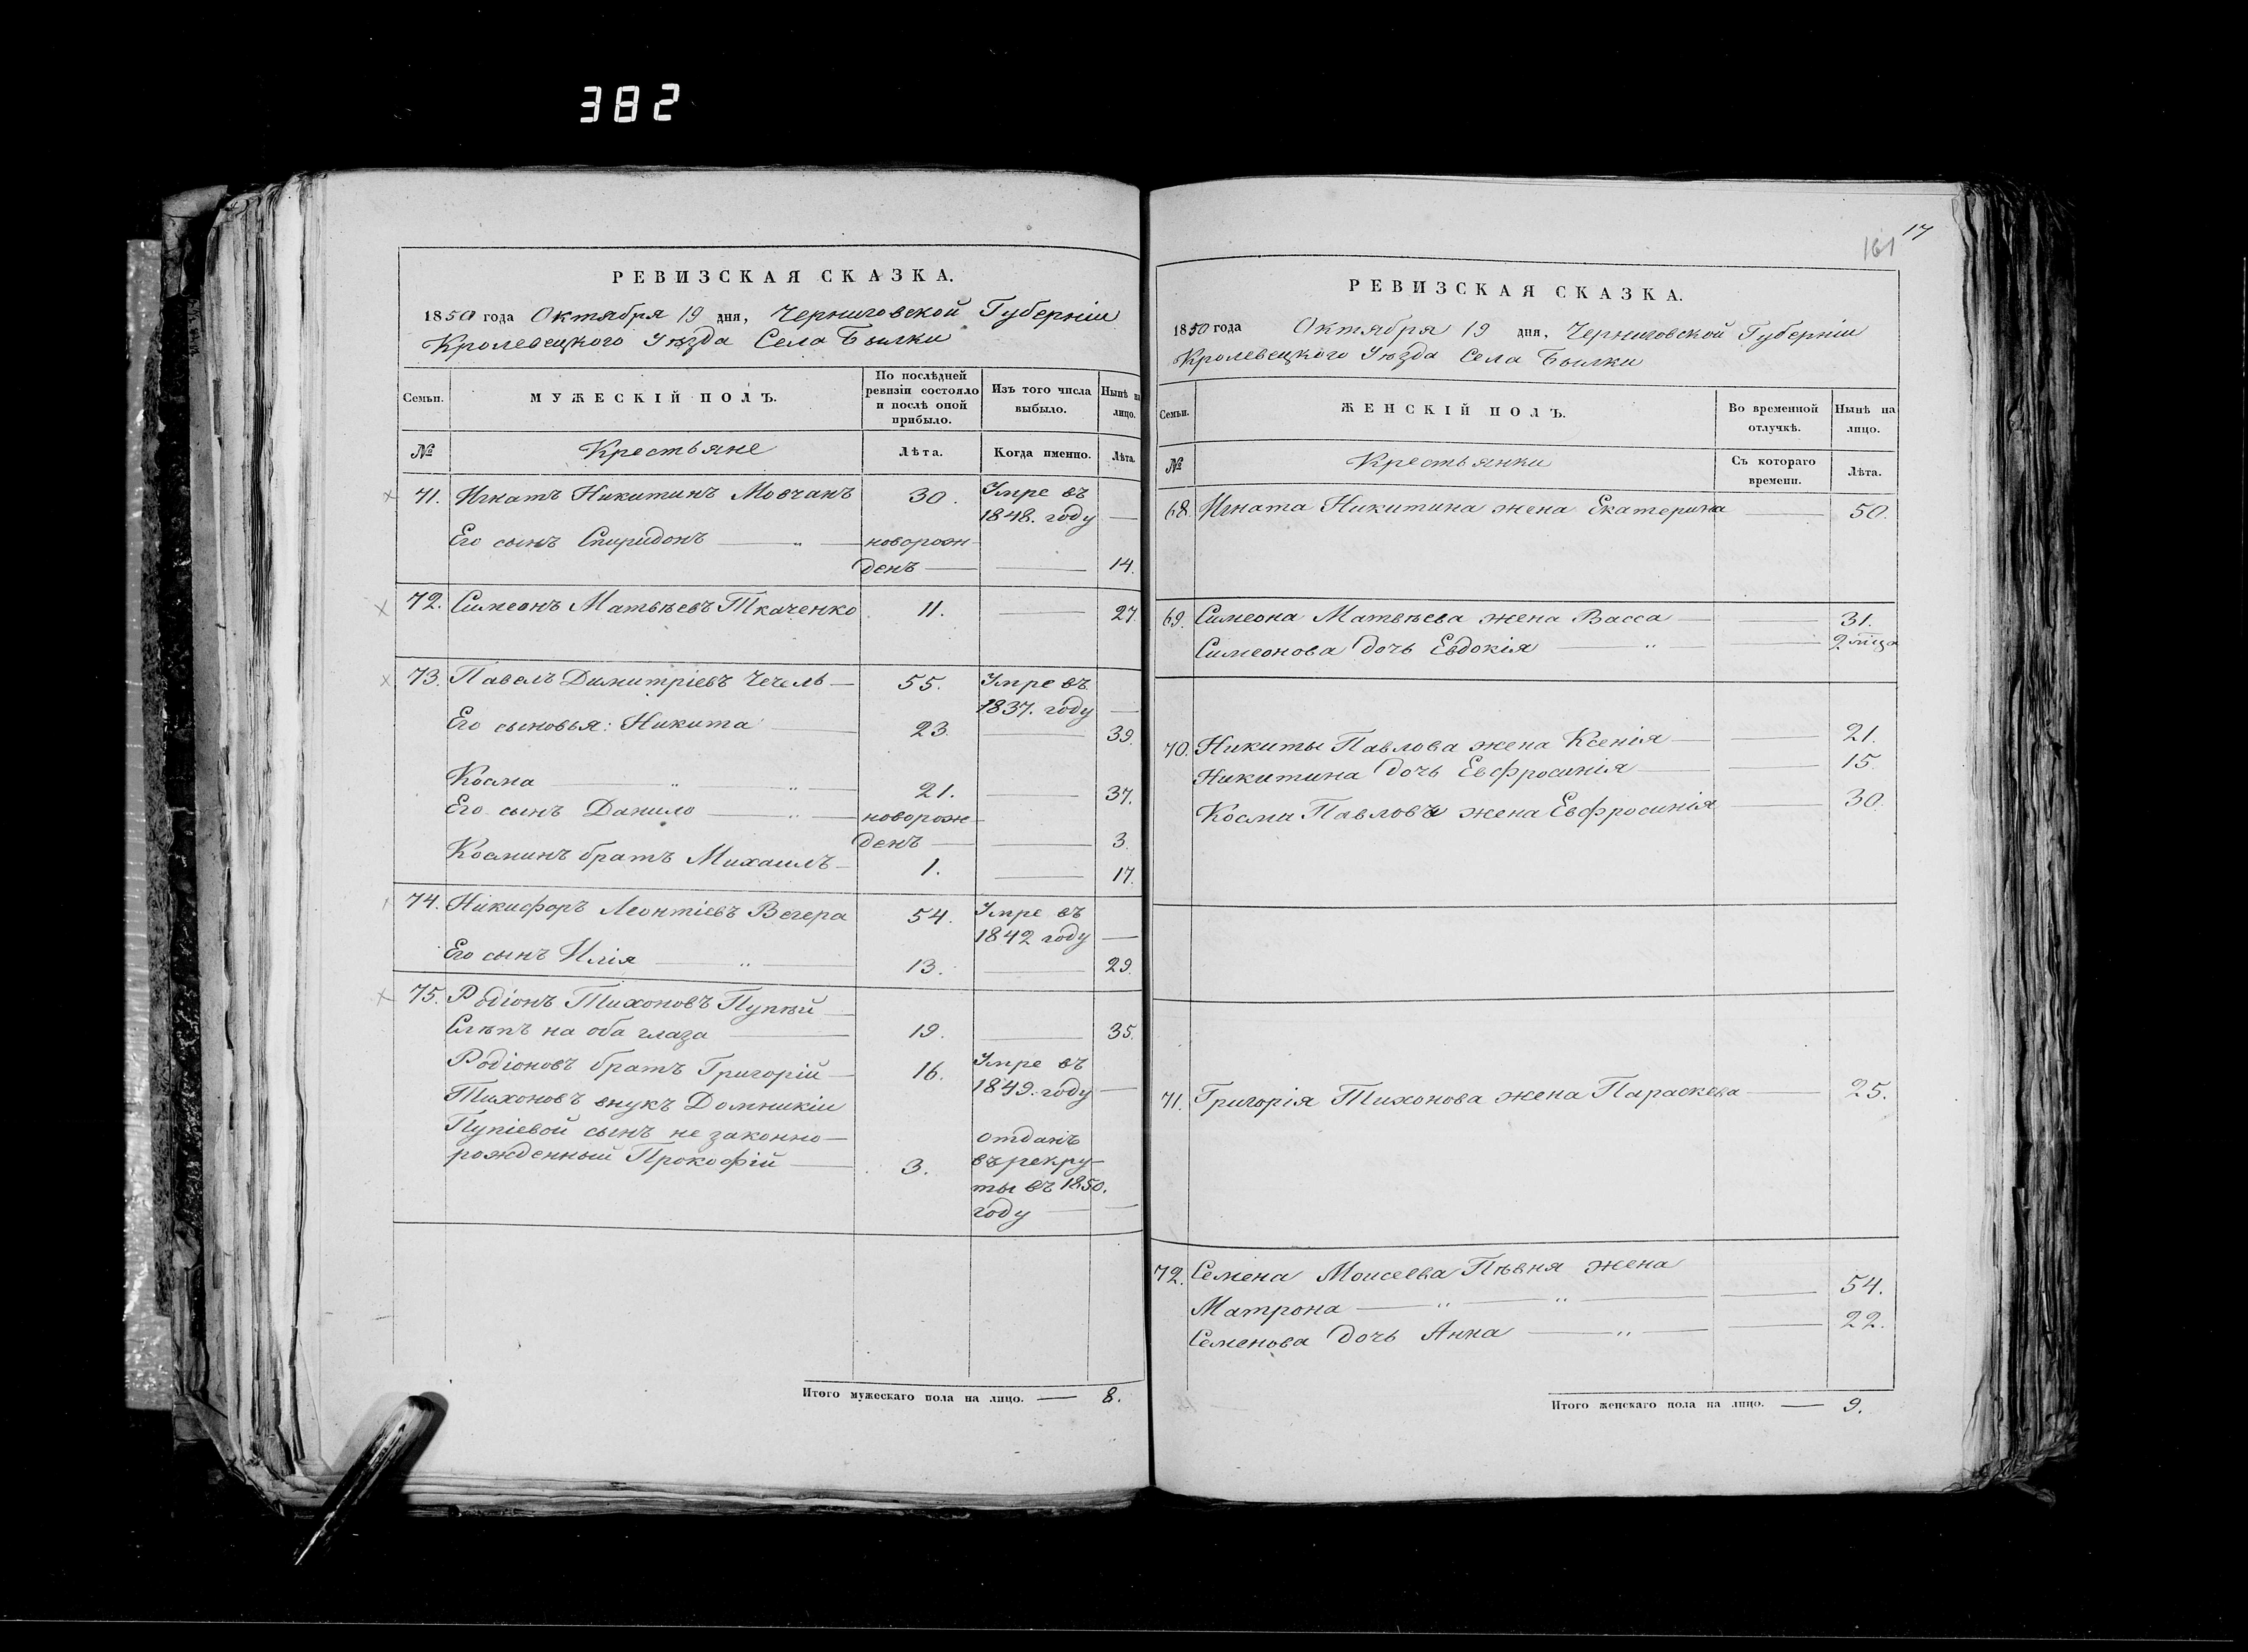 382
РЕВИЗСКАЯ СКАЗКА.
1850 года Октября 19 дня, Черниговской Губерніи
Кролевецкого Уѣзда Села Былки
Семьи. МУЖЕСКІЙ ПОЛЪ. По послѣдней ревизіи состояло и послѣ оной прибыло. Изъ того числа выбыло. Нынѣ на лицо.
№ Крестьяне Лѣта. Когда именно. Лѣта.
71. Игнатъ Никитинъ Мовчанъ 30. Умре въ
1848. году —
Его сынъ Спиридонъ — „ — новорож-
денъ — — 14.
72. Симеонъ Матвѣевъ Ткаченко 11. — 27.
73. Павелъ Димитріевъ Чечель — 55. Умре въ
1837. году —
Его сыновья: Никита — 23. — 39.
Косма — „ — „ — 21. — 37.
Его сынъ Данило — „ — новорож-
денъ — — 3.
Косминъ братъ Михаилъ — 1. — 17.
74. Никифоръ Леонтіевъ Вегера 54. Умре въ
1842 году —
Его сынъ Илія — „ — 13. — 29.
75. Родіонъ Тихоновъ Пупѣй —
Слѣпъ на оба глаза — 19. — 35.
Родіоновъ братъ Григорій — 16. Умре въ
1849. году —
Тихоновъ внукъ Домникіи
Пупіевой сынъ не законно— отданъ
рожденный Прокофій — 3. въ рекру-
ты въ 1850.
году — —
Итого мужескаго пола на лицо. — 8.
161 17
РЕВИЗСКАЯ СКАЗКА.
1850 года Октября 19 дня, Черниговской Губерніи
Кролевецкого Уѣзда Села Былки
Семьи. ЖЕНСКІЙ ПОЛЪ. Во временной отлучкѣ. Нынѣ на лицо.
№ Крестьянки Съ котораго времени. Лѣта.
68. Игната Никитина жена Екатерина — 50.
69. Симеона Матвѣева жена Васса — — 31.
Симеонова дочь Евдокія — „ — — 2 мѣсяца
70. Никиты Павлова жена Ксенія — — 21.
Никитина дочь Евфросинія — — 15.
Космы Павлова жена Евфросинія — 30.
71. Григорія Тихонова жена Параскева — 25.
72. Семена Моисеева Пѣвня жена
Матрона — „ — „ — — 54.
Семенова дочь Анна — „ — — 22.
Итого женскаго пола на лицо. — 9.